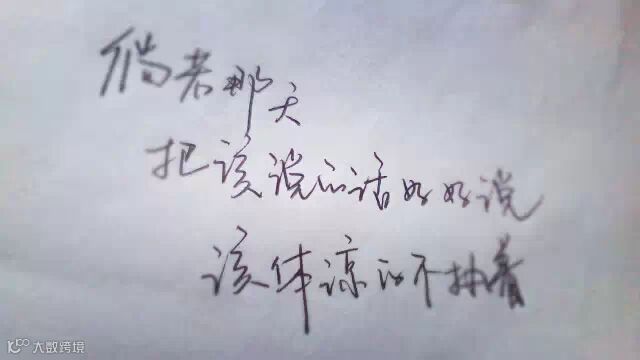 倘若那天
把该说的话好好说
该体谅的不执着
大数跨境